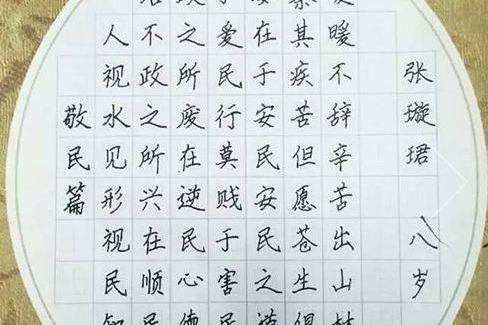 敬民篇
人视水见形视民知
不政之所兴在顺民
之所废在逆民心德
于爱民行莫贱于害民
在于安民安民之
其疾苦但愿苍生俱
暖不辞辛苦出山林
张璇珺 八岁